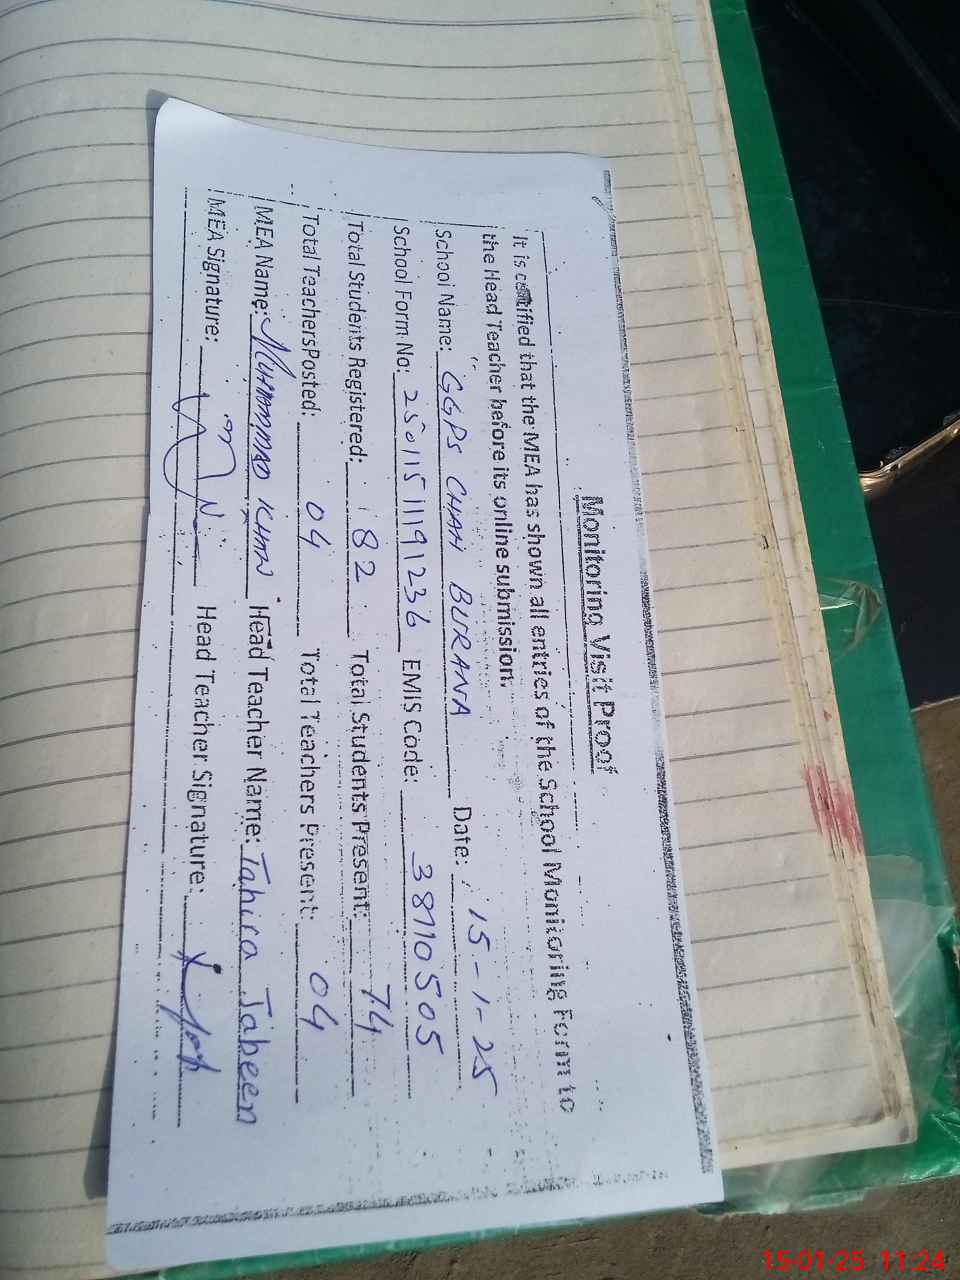 Monitoring Visit Proof
It is certified that the MEA has shown all entries of the School Monitoring Form to
the Head Teacher before its online submission.
School Name: GGPS CHAH BURANA Date: 15-1-25
School Form No: 25011511191236 EMIS Code: 38110505
Total Students Registered: 82 Total Students Present: 74
Total Teachers Posted: 04 Total Teachers Present: 04
MEA Name: MUHAMMAD KHAN Head Teacher Name: Tahira Jabeen
MEA Signature: Head Teacher Signature:
15-01-25 11:24